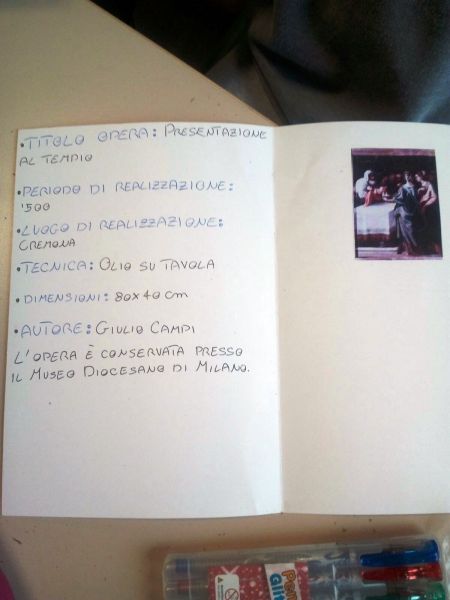 •TITOLO OPERA: PRESENTAZIONE
AL TEMPIO
•PERIODO DI REALIZZAZIONE:
'500
•LUOGO DI REALIZZAZIONE:
CREMONA
•TECNICA: OLIO SU TAVOLA
•DIMENSIONI: 80x40 cm
•AUTORE: GIULIO CAMPI
L'OPERA È CONSERVATA PRESSO
IL MUSEO DIOCESANO DI MILANO.